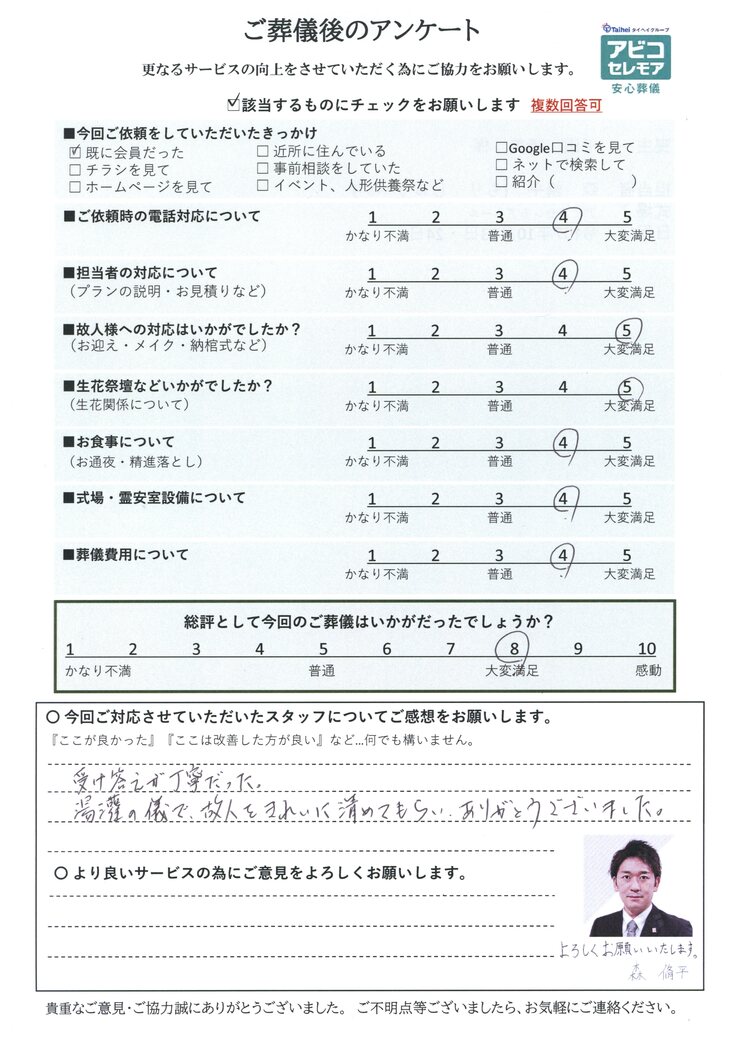 ご葬儀後のアンケート
Taihei タイヘイグループ
アビコ
セレモア
安心葬儀
更なるサービスの向上をさせていただく為にご協力をお願いします。
☑該当するものにチェックをお願いします 複数回答可
■今回ご依頼をしていただいたきっかけ
☑ 既に会員だった □ 近所に住んでいる □Google口コミを見て
□ チラシを見て □ 事前相談をしていた □ ネットで検索して
□ ホームページを見て □ イベント、人形供養祭など □ 紹介（ ）
■ご依頼時の電話対応について 1 2 3 4 5
かなり不満 普通 大変満足
■担当者の対応について 1 2 3 4 5
（プランの説明・お見積りなど） かなり不満 普通 大変満足
■故人様への対応はいかがでしたか？ 1 2 3 4 5
（お迎え・メイク・納棺式など） かなり不満 普通 大変満足
■生花祭壇などいかがでしたか？ 1 2 3 4 5
（生花関係について） かなり不満 普通 大変満足
■お食事について 1 2 3 4 5
（お通夜・精進落とし） かなり不満 普通 大変満足
■式場・霊安室設備について 1 2 3 4 5
かなり不満 普通 大変満足
■葬儀費用について 1 2 3 4 5
かなり不満 普通 大変満足
総評として今回のご葬儀はいかがだったでしょうか？
1 2 3 4 5 6 7 8 9 10
かなり不満 普通 大変満足 感動
〇 今回ご対応させていただいたスタッフについてご感想をお願いします。
『ここが良かった』『ここは改善した方が良い』など…何でも構いません。
受け答えが丁寧だった。
湯灌の儀で、故人をきれいに清めてもらい、ありがとうございました。
〇 より良いサービスの為にご意見をよろしくお願いします。
よろしくお願いいたします。
森 脩平
貴重なご意見・ご協力誠にありがとうございました。 ご不明点等ございましたら、お気軽にご連絡ください。